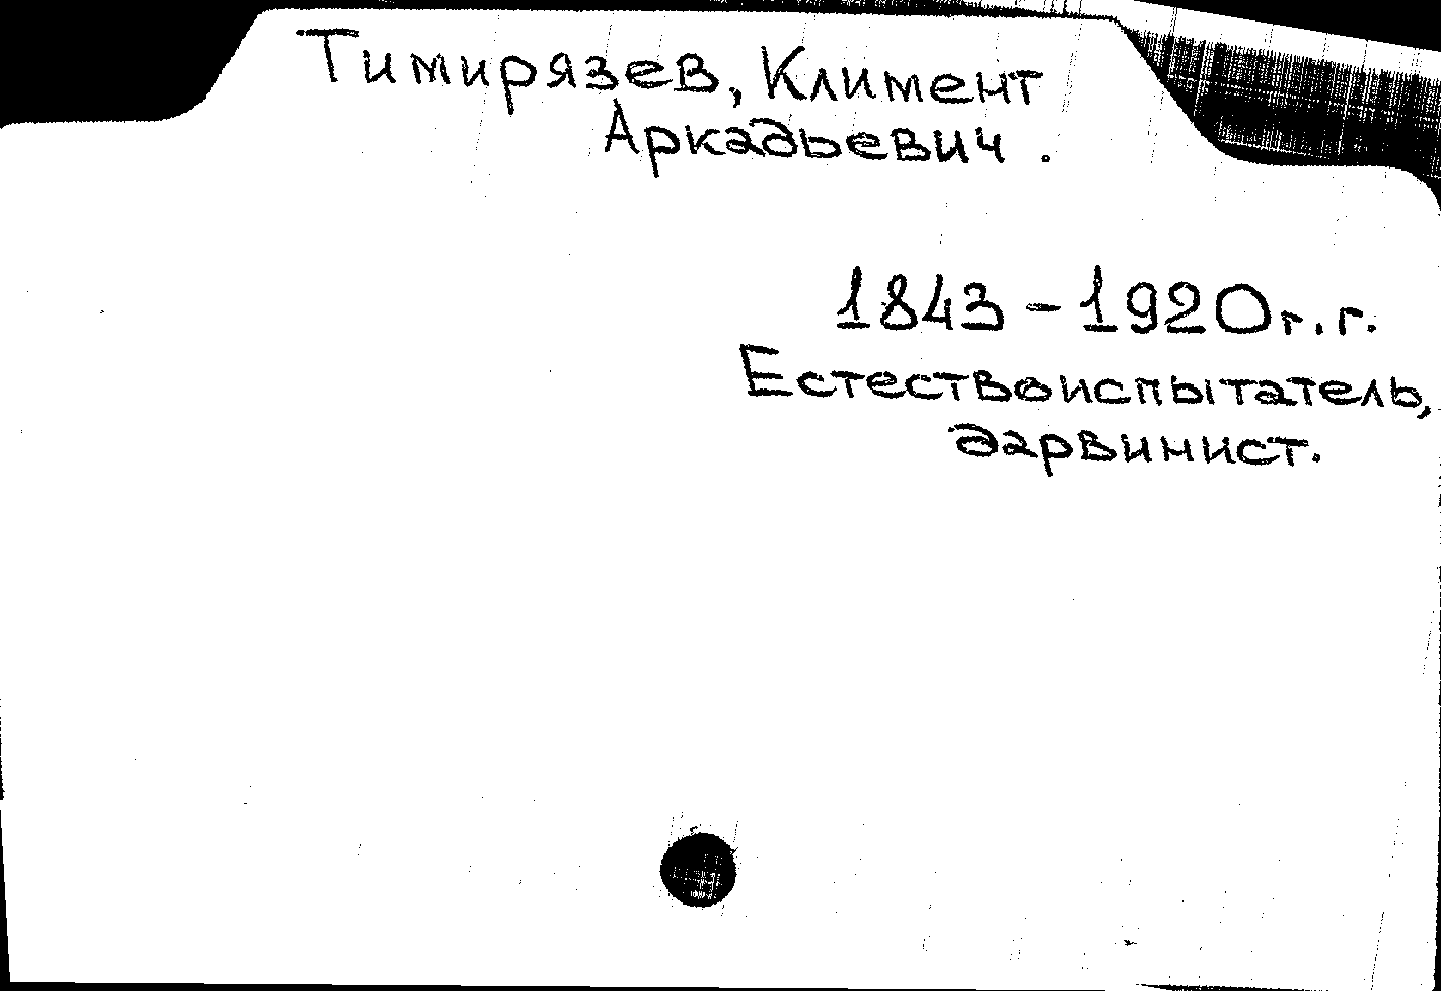 Тимирязев, Климент
Аркадьевич.
1843-1920г.г.
Естествоиспытатель,
дарвинист.